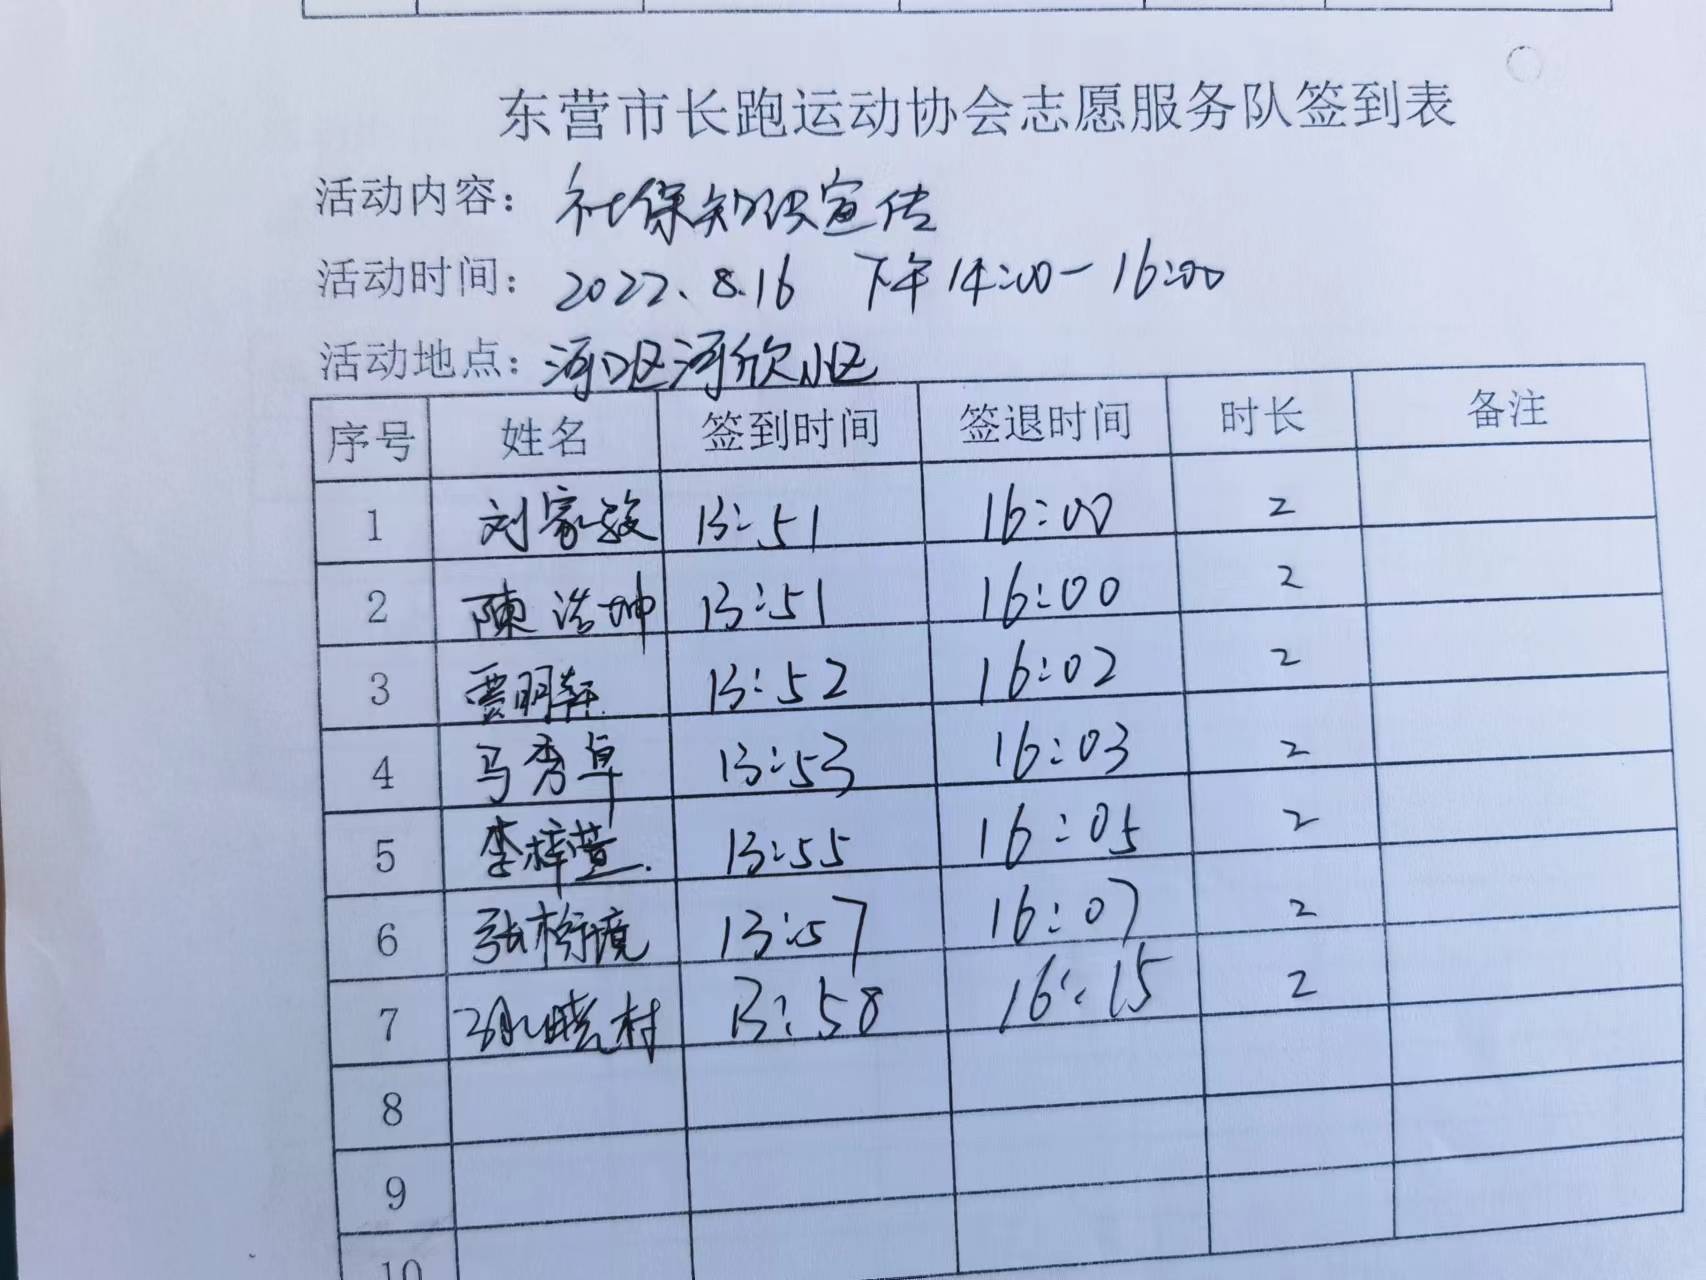 东营市长跑运动协会志愿服务队签到表
活动内容: 社保知识宣传
活动时间: 2022.8.16 下午14:00-16:00
活动地点: 河口区河欣小区
序号 姓名 签到时间 签退时间 时长 备注
1 刘家骏 13:51 16:00 2
2 陳浩坤 13:51 16:00 2
3 贾明轩 13:52 16:02 2
4 马秀卓 13:53 16:03 2
5 李梓萱 13:55 16:05 2
6 张 13:57 16:07 2
7 晓村 13:58 16:15 2
8
9
10